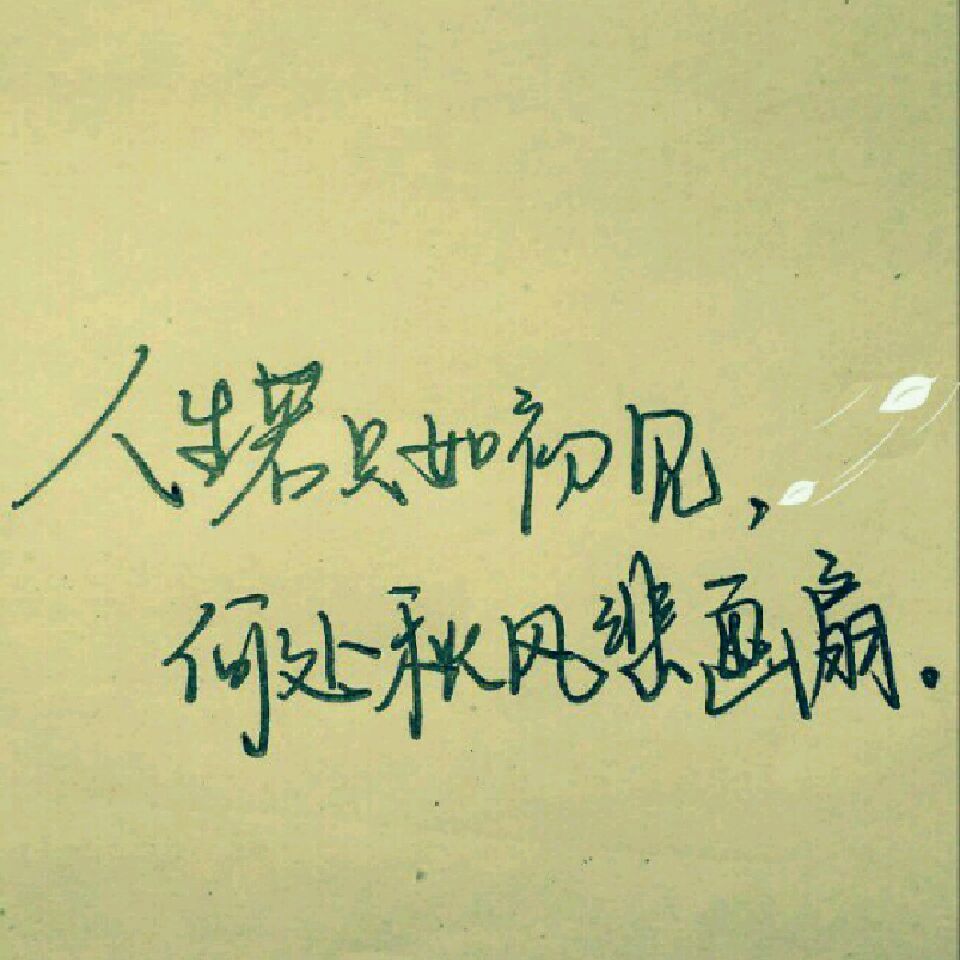 人生若只如初见,
何处秋风悲画扇.